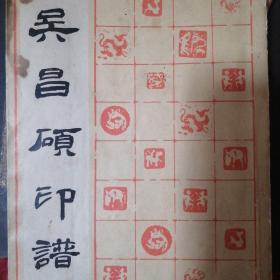 吴昌碩印譜